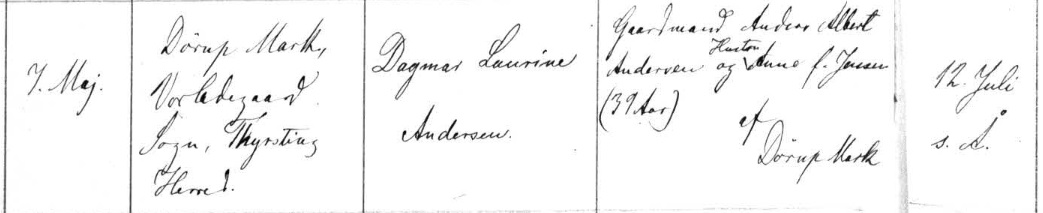 7. Maj.
Dörup Mark,
Vorladegaard
Sogn, Thyrsting
Herred.
Dagmar Laurine
Andersen.
Gaardmand Andres Albert
Andersen og Hustru Anne f. Jensen
(39 Aar)
af
Dörup Mark
12. Juli
s. Å.